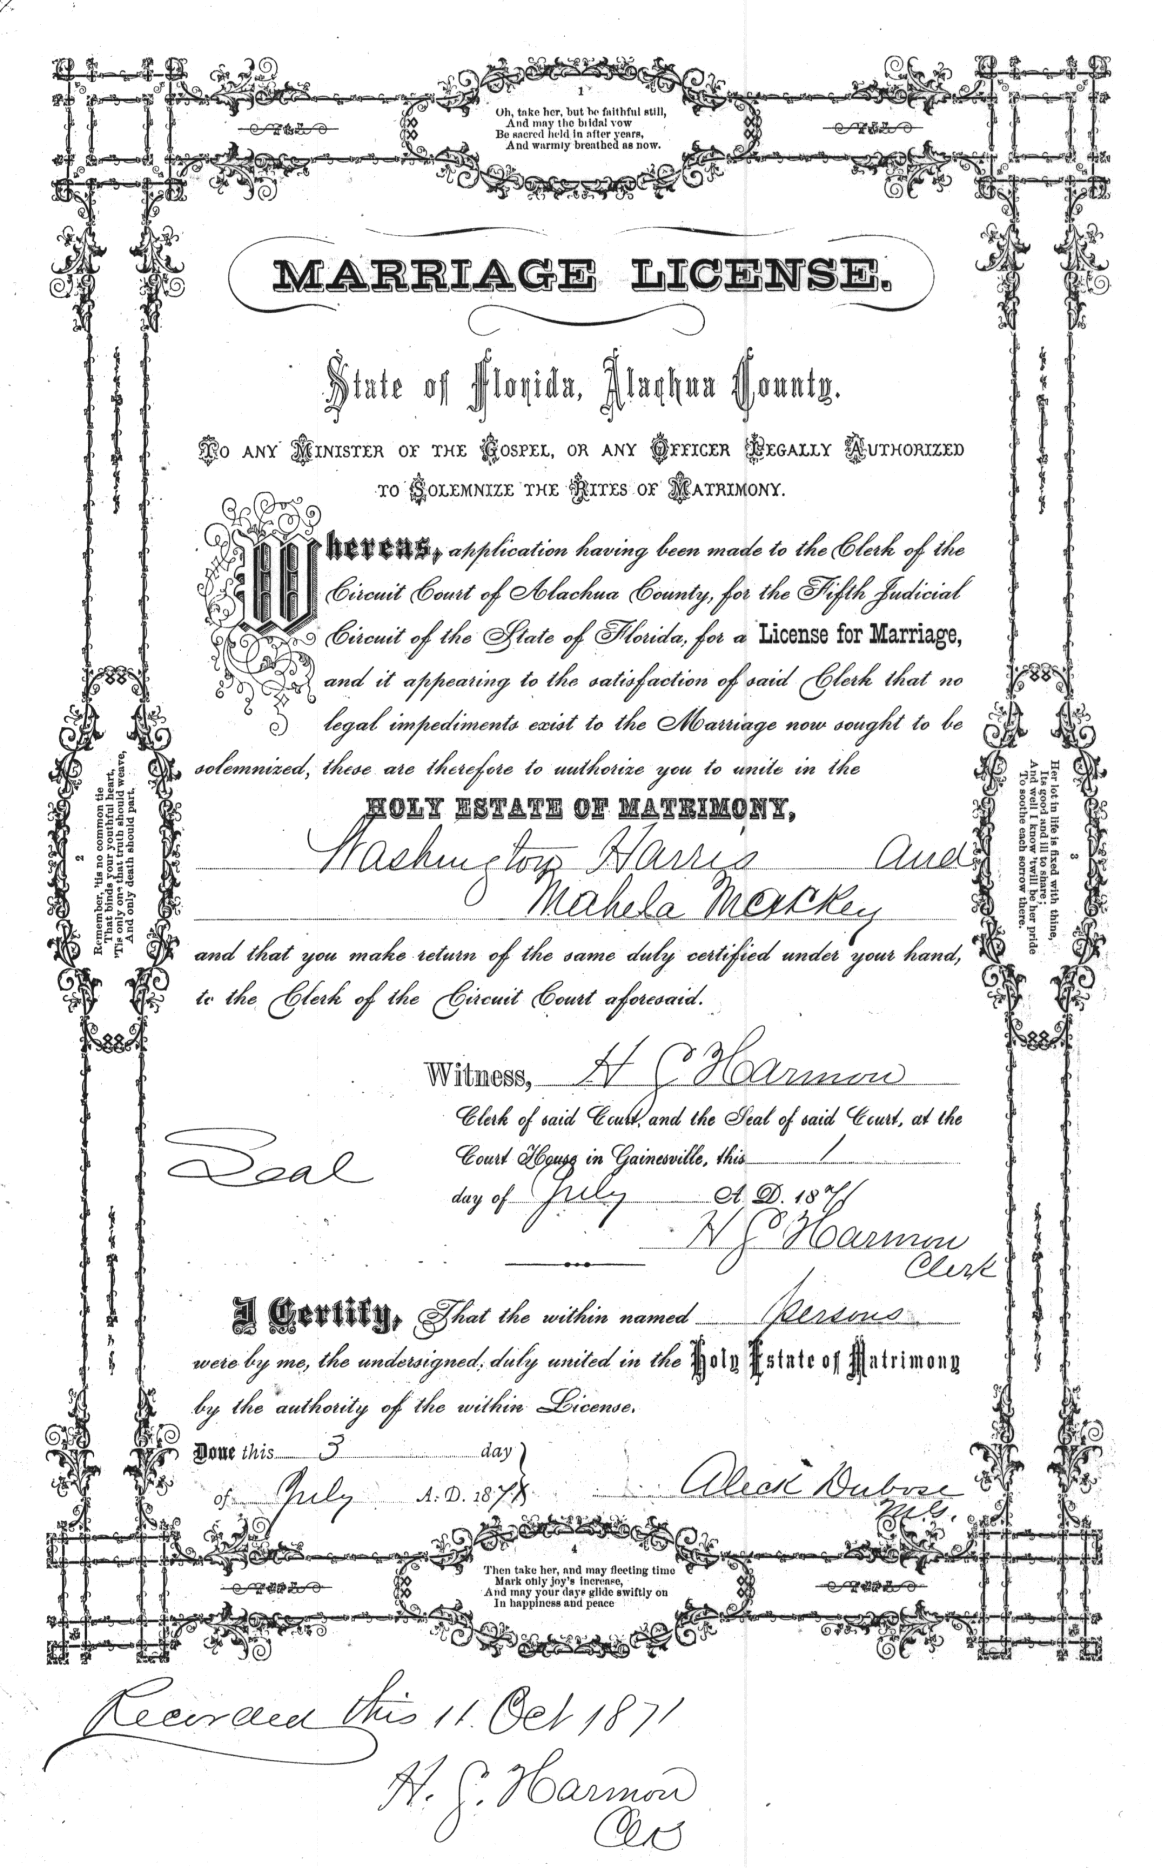 1
Oh, take her, but be faithful still,
And may the bridal vow
Be sacred held in after years,
And warmly breathed as now.
MARRIAGE LICENSE.
State of Florida, Alachua County.
TO ANY MINISTER OF THE GOSPEL, OR ANY OFFICER LEGALLY AUTHORIZED
TO SOLEMNIZE THE RITES OF MATRIMONY.
Whereas, application having been made to the Clerk of the
Circuit Court of Alachua County, for the Fifth Judicial
Circuit of the State of Florida, for a License for Marriage,
and it appearing to the satisfaction of said Clerk that no
legal impediments exist to the Marriage now sought to be
solemnized, these are therefore to authorize you to unite in the
HOLY ESTATE OF MATRIMONY,
Washington Harris and
Mahela Mackey
and that you make return of the same duly certified under your hand,
to the Clerk of the Circuit Court aforesaid.
2
Remember, 'tis no common tie
That binds your youthful heart,
'Tis only one that truth should weave,
And only death should part.
3
Her lot in life is fixed with thine,
Its good and ill to share;
And well I know 'twill be her pride
To soothe each sorrow there.
Witness, H G Harmon
Clerk of said Court, and the Seal of said Court, at the
Court House in Gainesville, this 1
Seal
day of July A. D. 1871
H G Harmon
Clerk
I Certify, That the within named persons
were by me, the undersigned, duly united in the Holy Estate of Matrimony
by the authority of the within License.
Done this 3 day
of July A. D. 1871
Aleck Dubose
M.G.
4
Then take her, and may fleeting time
Mark only joy's increase,
And may your days glide swiftly on
In happiness and peace
Recorded this 11 Oct 1871
H. G. Harmon
Clk